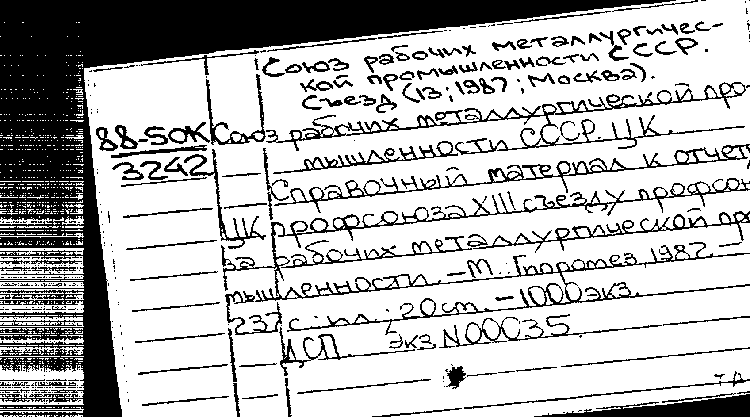 Союз рабочих металлургичес-
кой промышленности СССР.
Съезд (13; 1987; Москва).
88-50К Союз рабочих металлургической про-
3242 мышленности СССР. ЦК.
Справочный материал к отчет
ЦК профсоюза XIII съезду профсою
за рабочих металлургической про
мышленности. – М.: Гипромез, 1987. –
237 с.: ил.; 20 см. – 1000 экз.
ДСП. Экз N00035.